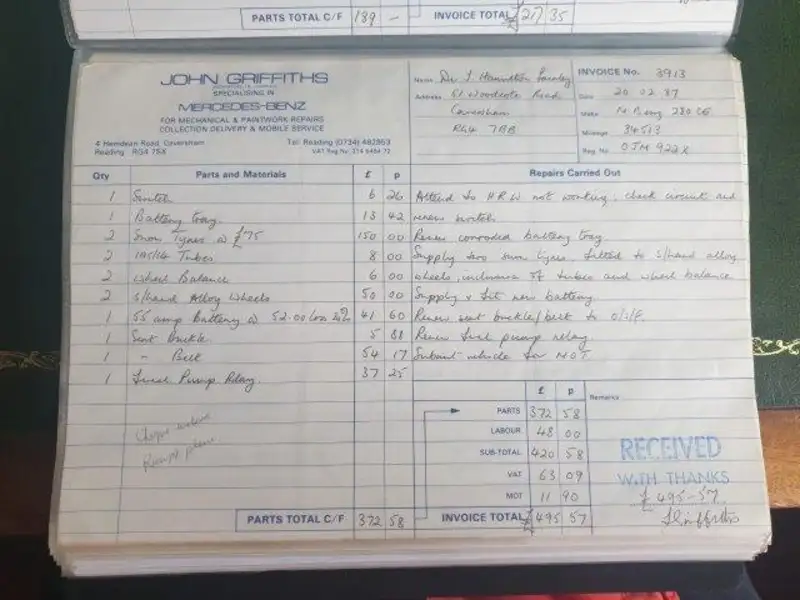 PARTS TOTAL C/F 189 - INVOICE TOTAL £217 35
JOHN GRIFFITHS
SPECIALISING IN
MERCEDES-BENZ
FOR MECHANICAL & PAINTWORK REPAIRS
COLLECTION DELIVERY & MOBILE SERVICE
4 Hemdean Road, Caversham Tel: Reading (0734) 482853
Reading RG4 7SX VAT Reg No
Name Dr J. Hamilton
Address 51 Woodcote Road
Caversham
RG4 7BB
INVOICE No. 3913
Date 20 02 87
Make M. Benz 280 CE
Mileage 34513
Reg No OJM 922X
Qty Parts and Materials £ p Repairs Carried Out
1 Switch 6 26 Attend to H.R.W not working, check circuit and
1 Battery tray. 13 42 renew switch
2 Snow Tyres @ £75 150 00 Renew corroded battery tray
2 Tubes 8 00 Supply two snow tyres fitted to s/hand alloy
2 Wheel Balance 6 00 wheels, inclusive of tubes and wheel balance
2 S/hand Alloy Wheels 50 00 Supply & fit new battery
1 55 amp Battery @ 52.00 less 20% 41 60 Renew seat buckle/belt to O/S/F.
1 Seat Buckle 5 88 Renew fuel pump relay.
1 " Belt 54 17 Submit vehicle for MOT
1 Fuel Pump Relay. 37 25
£ p Remarks
PARTS 372 58
LABOUR 48 00
SUB-TOTAL 420 58
VAT 63 09
MOT 11 90
PARTS TOTAL C/F 372 58 INVOICE TOTAL £495 57
RECEIVED
WITH THANKS
£495-57
J Griffiths